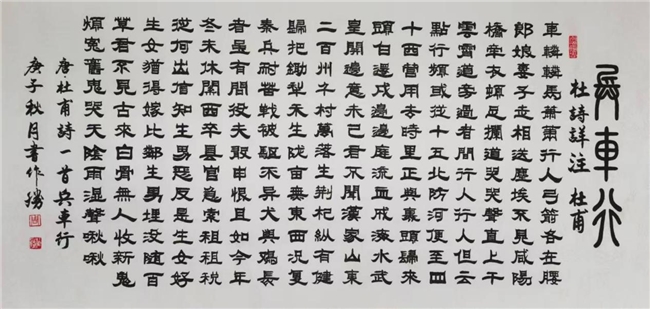 兵車行
杜詩詳注 杜甫
車轔轔馬蕭蕭行人弓箭各在腰
耶娘妻子走相送塵埃不見咸陽
橋牽衣頓足攔道哭哭聲直上干
雲霄道旁過者問行人行人但云
點行頻或從十五北防河便至四
十西營田去時里正與裹頭歸來
頭白還戍邊邊庭流血成海水武
皇開邊意未已君不聞漢家山東
二百州千村萬落生荊杞縱有健
婦把鋤犁禾生隴畝無東西況復
秦兵耐苦戰被驅不異犬與雞長
者雖有問役夫敢申恨且如今年
冬未休關西卒縣官急索租租稅
從何出信知生男惡反是生女好
生女猶得嫁比鄰生男埋沒隨百
草君不見古來白骨無人收新鬼
煩冤舊鬼哭天陰雨濕聲啾啾
唐杜甫詩一首兵車行
庚子秋月書作